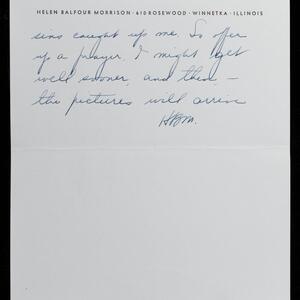 HELEN BALFOUR MORRISON · 610 ROSEWOOD · WINNETKA · ILLINOIS
sins caught up me. So offer
up a prayer. I might get
well sooner, and then —
the pictures will arrive
HBM.